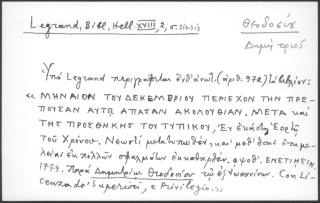 Legrand, Bibl. Hell. XVIII, 2, σ.
Θεοδοσίου
Δημήτριος
Ὑπό Legrand περιγράφεται ἀνθ'ἀνωτ. (ἀριθ. 972) τὸ βιβλίον:
« ΜΗΝΑΙΟΝ ΤΟΥ ΔΕΚΕΜΒΡΙΟΥ ΠΕΡΙΕΧΟΝ ΤΗΝ ΠΡΕ-
ΠΟΥΣΑΝ ΑΥΤΩ ΑΠΑΣΑΝ ΑΚΟΛΟΥΘΙΑΝ. ΜΕΤΑ ΚΑΙ
ΤΗΣ ΠΡΟΣΘΗΚΗΣ ΤΟΥ ΤΥΠΙΚΟΥ, Ἐν ἑκάστῃ Ἑορτῇ
τοῦ Χρόνου. Νεωστὶ μετατυπωθὲν, καὶ μεθ' ὅσης ἐπιμε-
λείας ἐκ πολλῶν σφαλμάτων ἐκκαθαρθέν. αψοθ'. ΕΝΕΤΙΗΣΙΝ,
1779. Παρὰ Δημητρίῳ Θεοδοσίου τῷ ἐξ Ἰωαννίνων. Con Li-
cenza de' Superiori, e Privilegio